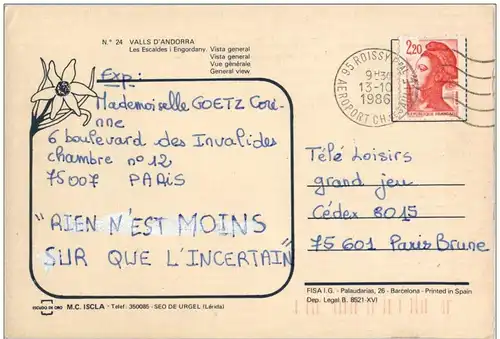 N.º 24 VALLS D'ANDORRA
Les Escaldes i Engordany. Vista general
Vista general
Vue générale
General view
Exp:
Mademoiselle GOETZ Cori-
nne
6 boulevard des Invalides
chambre nº 12
75007 PARIS
"RIEN N'EST MOINS
SUR QUE L'INCERTAIN"
95 ROISSY
9H30
13-10
1986
AEROPORT CH.
2,20
REPUBLIQUE FRANÇAISE
Télé Loisirs
grand jeu
Cédex 8015
75 601 Paris Brune
ESCUDO DE ORO M.C. ISCLA - Telef: 350085 - SEO DE URGEL (Lérida)
FISA I.G. - Palaudarias, 26 - Barcelona - Printed in Spain
Dep. Legal B. 8521-XVI